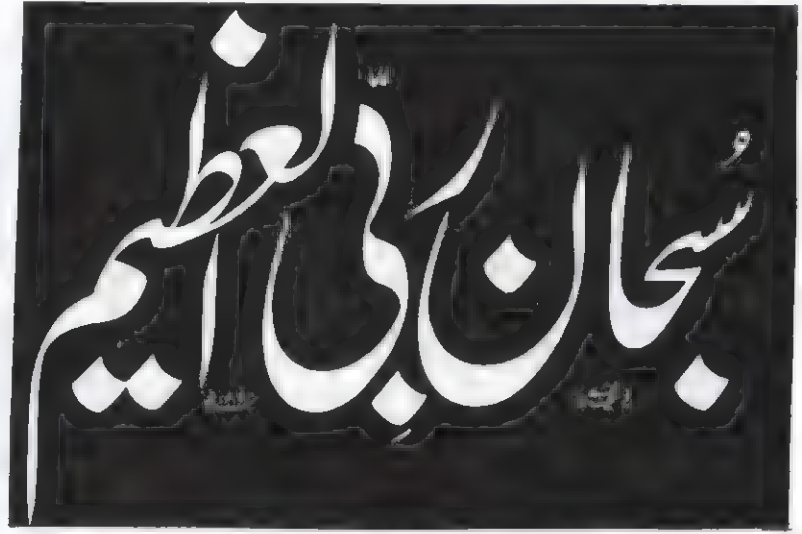 سُبحان ربّي العظيم